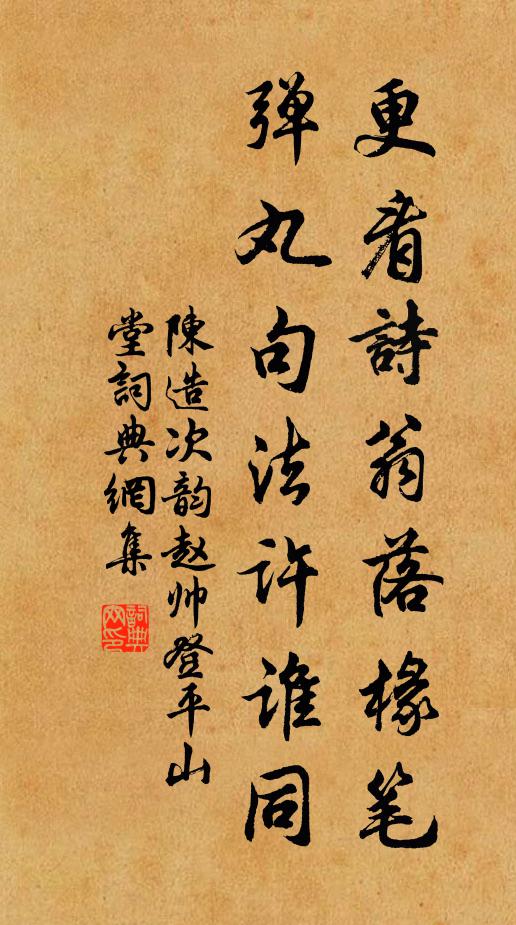 更看詩翁落椽笔
弹丸句法许谁同
陳造次韵赵帅登平山
堂詞典網集
詞典